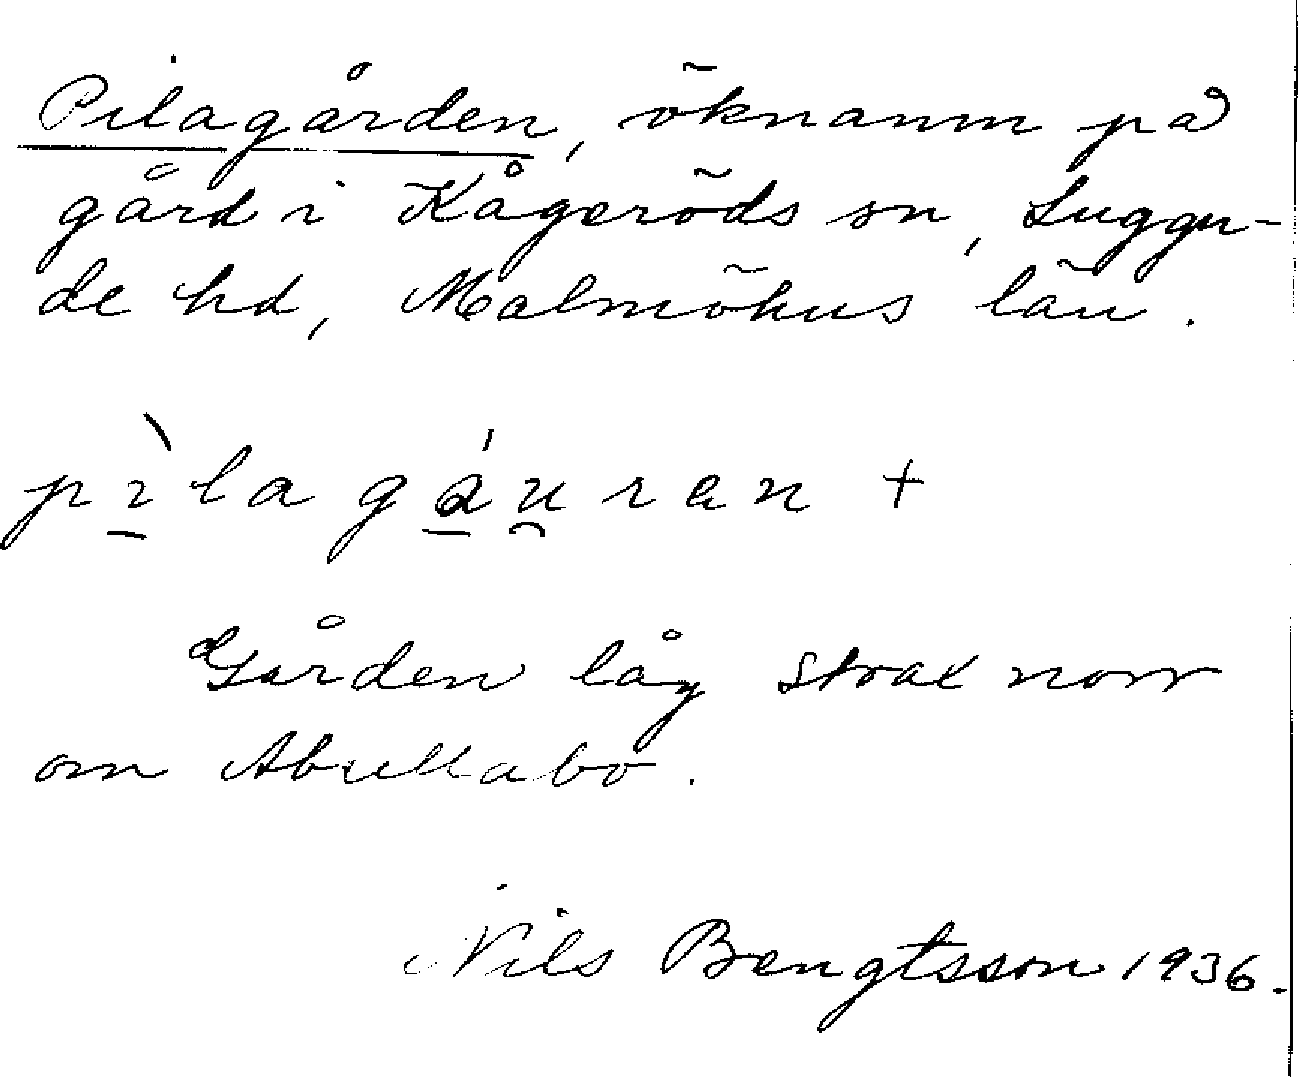 Pilagården, öknamn på
gård i Kågeröds sn, Luggu-
de hd, Malmöhus län.
pìlagáuran +
Gården låg strax norr
om Abullabo.
Nils Bengtsson 1936.